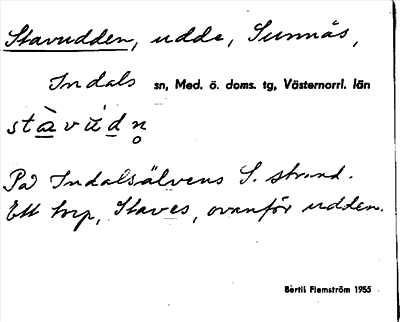 Stavudden, udde, Sunnås,
Indals sn, Med. ö. doms. tg, Västernorrl. län
stàvúdn̥
På Indalsälvens S. strand.
Ett torp, Staves, ovanför udden.
Bertil Flemström 1955